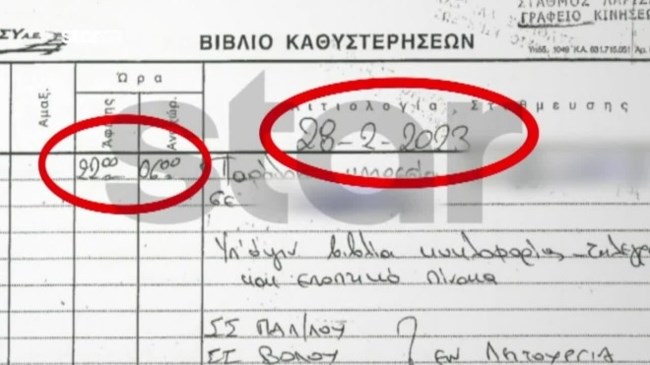 ΣΤΑΘΜΟΣ ΛΑΡΙΣ
ΓΡΑΦΕΙΟ ΚΙΝΗΣΕΩ
ΒΙΒΛΙΟ ΚΑΘΥΣΤΕΡΗΣΕΩΝ
Ώρα
Αμαξ.
Άφιξης
Αναχώρ.
Αιτιολογία Στάθμευσης
28-2-2023
22:00 06:00
star
σε
Υπ' όψιν βιβλία κυκλοφορίας
και εποπτικό πίνακα
ΣΣ ΠΑΛ/ΛΟΥ
ΣΣ ΒΟΛΟΥ } εν λειτουργία